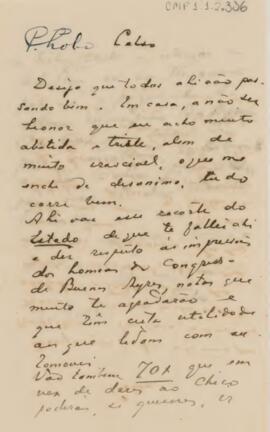 CMP 1.1.2.306
Celso
Desejo que todos ahi vão pas-
sando bem. Em casa, a não ser
Leonor que eu acho muito
abatida e triste, alem de
muito irascivel, o que me
enche de desanimo, tudo
corre bem.
Ahi vae esse recorte do
Estado de que te fallei ahi
a respeito ás impressões
dos homens do Congresso
de Buenos Ayres, notas que
muito te agradarão e
que têm certa utilidade
aos que lidam com
Vão tambem 70$ que em
vez de dares ao Chico
poderás, si quizeres,